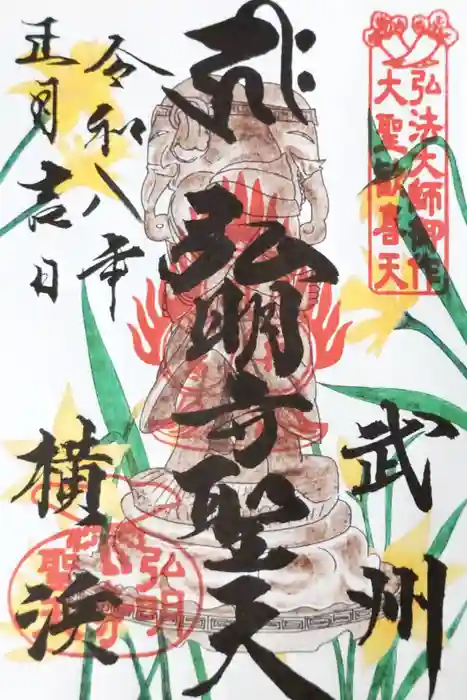 弘法大師御作
大聖歓喜天
武州
弘明寺聖天
令和八年
正月吉日
横浜